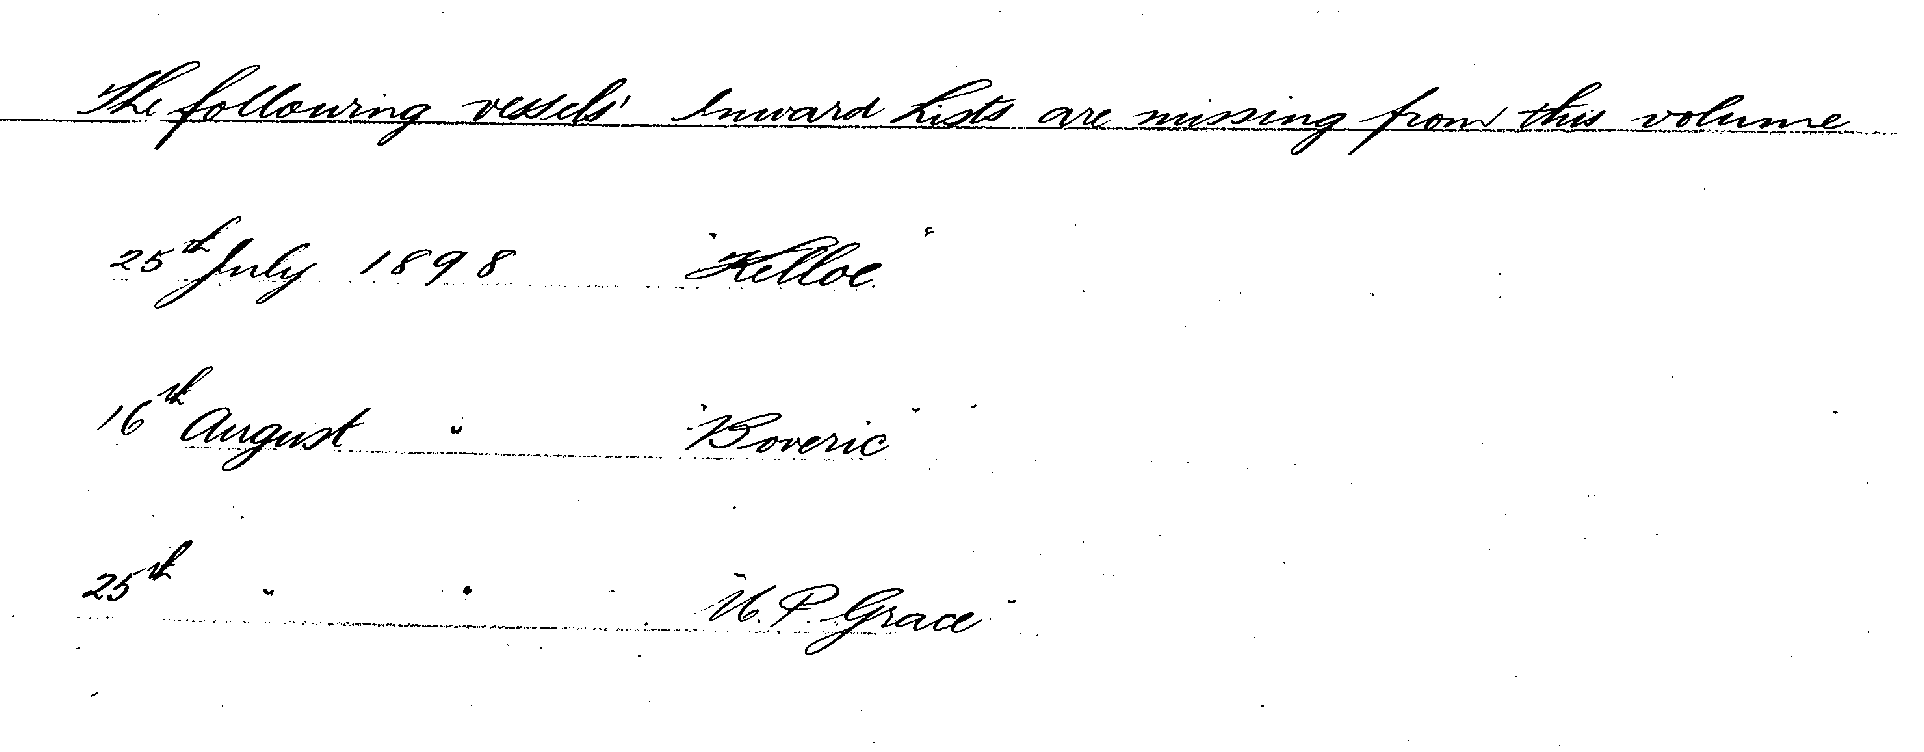 The following vessels' Inward Lists are missing from this volume
25th July 1898 "Kelloe"
16th August " "Boveric"
25th " " "W. P. Grace"